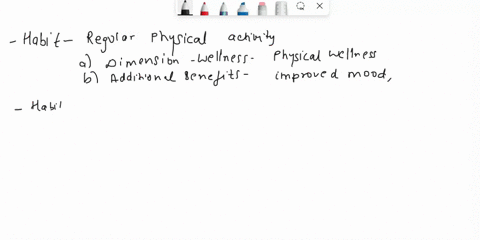 - Habit - Regular physical activity
a) Dimension - wellness - Physical wellness
b) Additional Benefits - improved mood,
- Habi